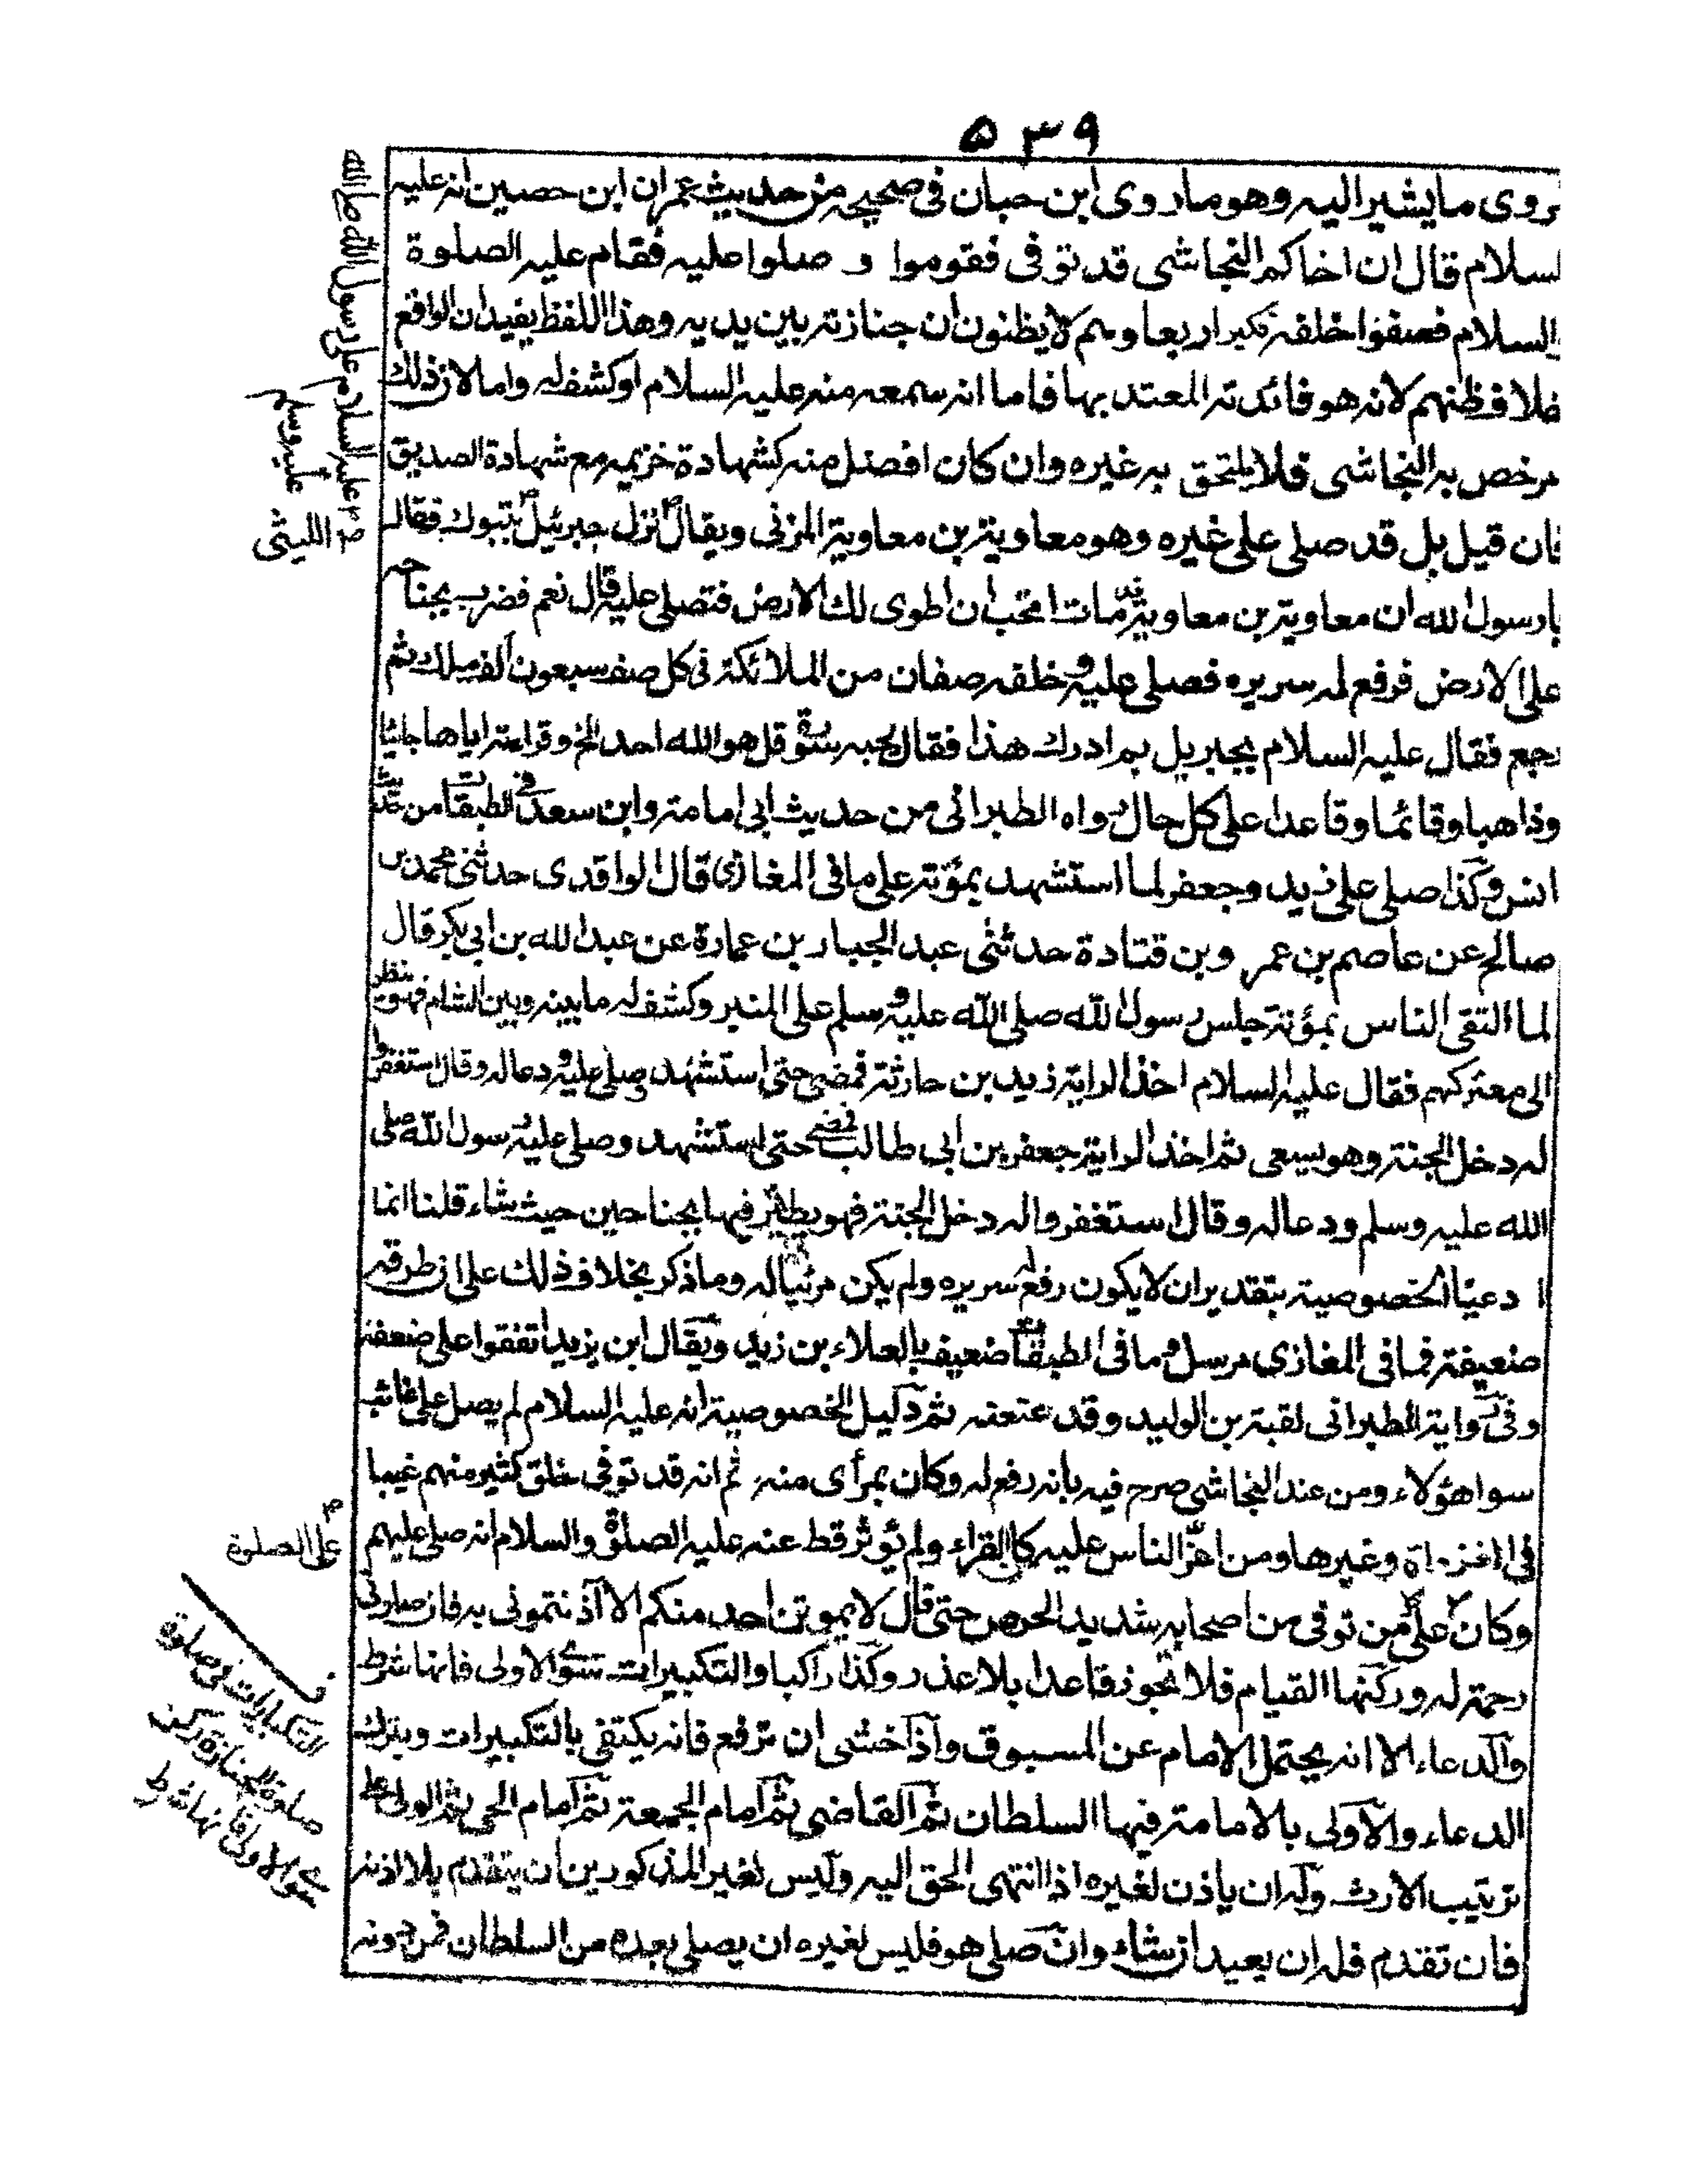 ۵۳۹
روى ما يشير اليه وهو ما روى ابن حبان فى صحيحه من حديث عمران ابن حصين انه عليه
لسلام قال ان اخاكم النجاشى قد توفى فقوموا و صلوا عليه فقام عليه الصلوة
والسلام فصفوا خلفه فكبر اربعا وهم لا يظنون ان جنازته بين يديه وهذا اللفظ يفيد ان الواقع
خلاف ظنهم لانه هو فائدته المعتد بها فاما انه سمعه منه عليه السلام او كشف له واما لان ذلك
مرخص به النجاشى فلا يلتحق به غيره وان كان افضل منه كشهادة خزيمه مع شهادة الصديق
فان قيل بل قد صلى على غيره وهو معاوية بن معاوية المزنى ويقال نزل جبرئيل بتبوك فقال
يا رسول الله ان معاوية بن معاوية مات اتحب ان اطوى لك الارض فتصلى عليه قال نعم فضرب بجناحه
على الارض فرفع له سريره فصلى عليه وخلفه صفان من الملائكة فى كل صف سبعون الف ملك ثم
رجع فقال عليه السلام يجبريل بم ادرك هذا فقال لحبه سورة قل هو الله احد الخ وقراءته اياها جائيا
وذاهبا وقائما وقاعدا على كل حال رواه الطبرانى من حديث ابى امامة وابن سعد فى الطبقات من حديث
انس وكذا صلى على زيد وجعفر لما استشهد بمؤتة على ما فى المغازى قال الواقدى حدثنى محمد بن
صالح عن عاصم بن عمر وبن قتادة حدثنى عبد الجبار بن عمارة عن عبد الله بن ابى بكر قال
لما التقى الناس بمؤتة جلس رسول الله صلى الله عليه وسلم على المنبر وكشف له ما بينه وبين الشام فهو ينظر
الى معتركهم فقال عليه السلام اخذ الراية زيد بن حارثة فمضى حتى استشهد وصلى عليه ودعا له وقال استغفروا
له دخل الجنة وهو يسعى ثم اخذ الراية جعفر بن ابى طالب فمضى حتى استشهد وصلى عليه رسول الله صلى
الله عليه وسلم ودعا له وقال استغفروا له دخل الجنة فهو يطير فيها بجناحين حيث شاء قلنا انما
ا دعينا الخصوصية بتقدير ان لا يكون رفع له سريره ولم يكن مرئيا له وما ذكر بخلاف ذلك على ان طرقه
ضعيفة فما فى المغازى مرسل وما فى الطبقات ضعيف بالعلاء بن زيد ويقال ابن يزيد اتفقوا على ضعفه
وفى رواية الطبرانى لقبة بن الوليد وقد عنعنه ثم دليل الخصوصية انه عليه السلام لم يصل على غائب
سوا هؤلاء ومن عند النجاشى صرح فيه بانه رفع له وكان بمرأى منه ثم انه قد توفى خلق كثير منهم غيبا
فى وغيرها ومن اعز الناس عليه كان القراء ولم يؤثر قط عنه عليه الصلوة والسلام انه صلى عليهم
وكان على من توفى من اصحابه شديد الحرص حتى قال لا يموتن احد منكم الا آذنتمونى به فان صلوتى
رحمة له وركنها القيام فلا تجوز قاعدا بلا عذر وكذا راكبا والتكبيرات سوى الاولى فانها شرط
والدعاء الا انه يحتمل الامام عن المسبوق واذا خشى ان ترفع فانه يكتفى بالتكبيرات ويترك
الدعاء والاولى بالامامة فيها السلطان ثم القاضى ثم امام الجمعة ثم امام الحى ثم الولى على
ترتيب الارث وله ان ياذن لغيره اذا انتهى الحق اليه وليس لغير المذكورين ان يتقدم بلا اذنه
فان تقدم فله ان يعيد ان شاء وان صلى هو فليس لغيره ان يصلى بعده من السلطان فمن دونه
عليه السلام على رسول الله صلى الله
عليه وسلم
الليثى
على الصلوة
التكبيرات فى صلوة
صلوة الجنازة ركن
سوى الاولى فانها شرط